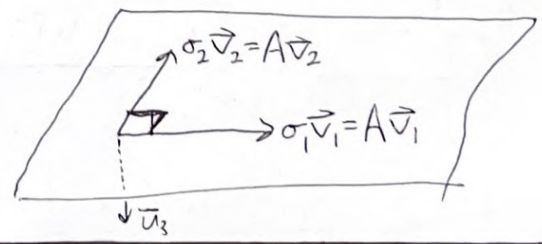 σ₂v⃗₂ = Av⃗₂
σ₁v⃗₁ = Av⃗₁
u̅₃